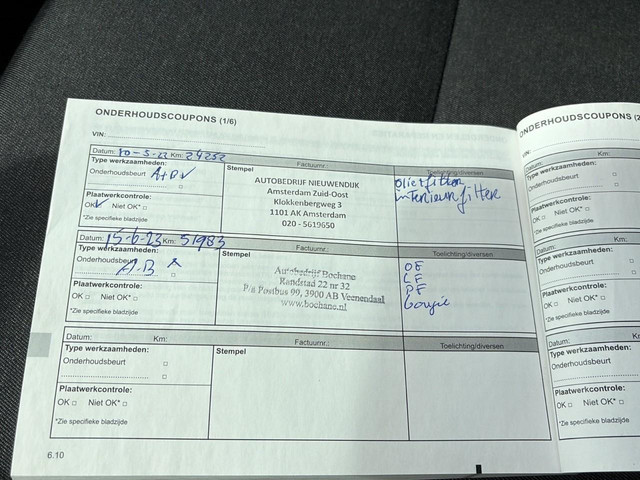 ONDERHOUDSCOUPONS (1/6)
VIN:
Datum: 10-5-22 Km: 24252
Type werkzaamheden:
Onderhoudsbeurt
Plaatwerkcontrole:
OK Niet OK*
*Zie specifieke bladzijde
Factuurnr.:
Stempel
AUTOBEDRIJF NIEUWENDIJK
Amsterdam Zuid-Oost
Klokkenbergweg 3
1101 AK Amsterdam
020 - 5619650
Toelichting/diversen
Datum: 15-6-23 Km: 51983
Type werkzaamheden:
Onderhoudsbeurt
A.B
Plaatwerkcontrole:
OK Niet OK*
*Zie specifieke bladzijde
Factuurnr.:
Stempel
Autobedrijf Bochane
Randstad 22 nr 32
P/a Postbus 99, 3900 AB Veenendaal
www.bochane.nl
Toelichting/diversen
OF
PF
Bougie
Datum: Km:
Type werkzaamheden:
Onderhoudsbeurt
Plaatwerkcontrole:
OK Niet OK*
*Zie specifieke bladzijde
Factuurnr.:
Stempel
Toelichting/diversen
6.10
ONDERHOUDSCOUPONS (2
VIN:
Datum:
Type werkzaamheden:
Onderhoudsbeurt
Plaatwerkcontrole:
OK Niet OK*
*Zie specifieke bladzijde
Datum:
Type werkzaamheden:
Onderhoudsbeurt
Plaatwerkcontrole:
OK Niet OK*
*Zie specifieke bladzijde
Datum:
Type werkzaamheden:
Onderhoudsbeurt
Plaatwerkcontrole:
OK Niet OK*
*Zie specifieke bladzijde